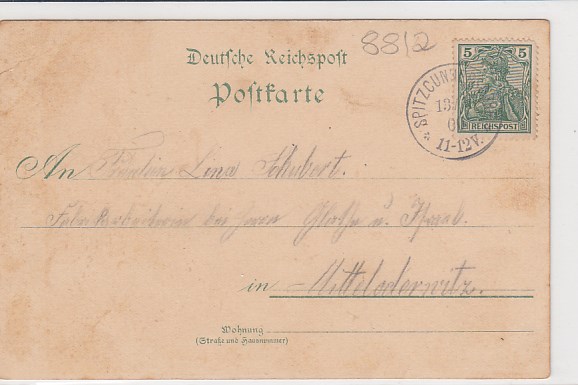 8812
Deutsche Reichspost
Postkarte
5 5
REICHSPOST
* SPITZCUN
13
11-12V.
An Fräulein Lina Schubert.
Fabrikarbeiterin bei Herrn Gloche u.
in Mitteloderwitz.
Wohnung
(Straße und Hausnummer)